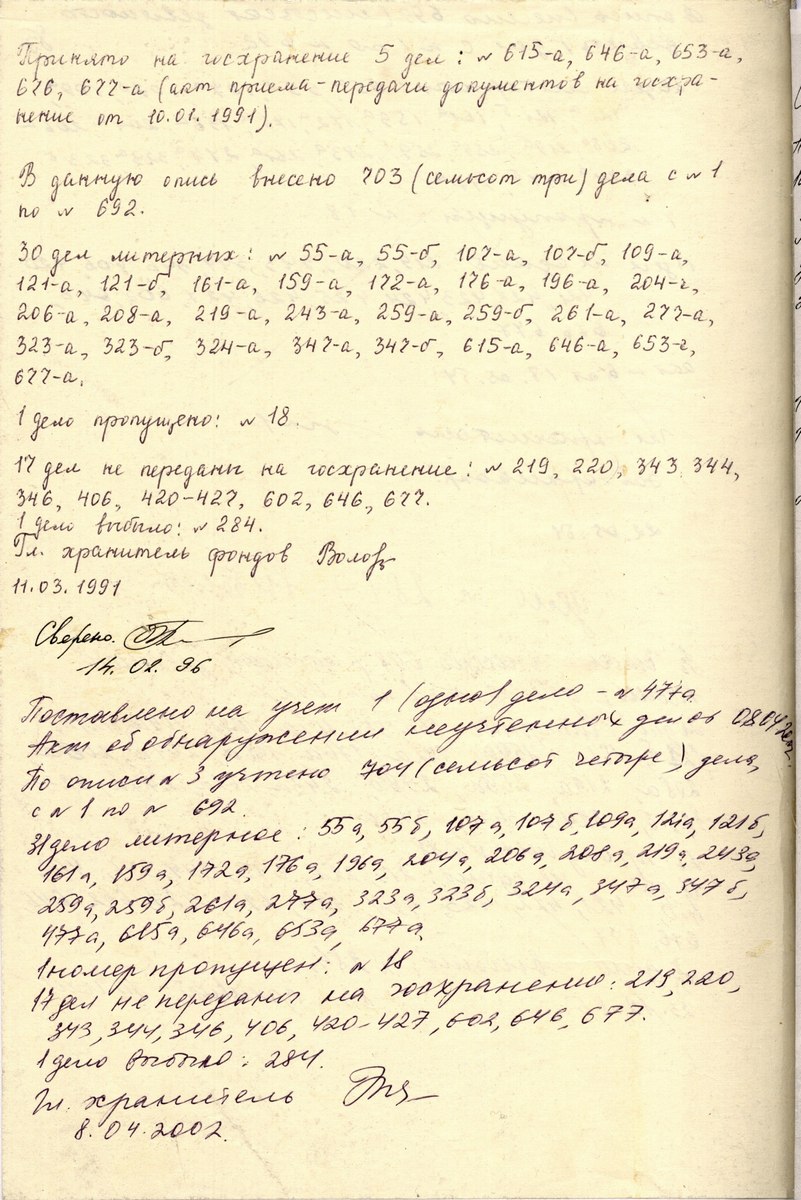 Принято на госхранение 5 дел: № 615-а, 646-а, 653-а,
676, 677-а (акт приема-передачи документов на госхра-
нение от 10.01.1991).
В данную опись внесено 703 (семьсот три) дела с № 1
по № 692.
30 дел литерных: № 55-а, 55-б, 107-а, 107-б, 109-а,
121-а, 121-б, 161-а, 159-а, 172-а, 176-а, 196-а, 204-г,
206-а, 208-а, 219-а, 243-а, 259-а, 259-б, 261-а, 277-а,
323-а, 323-б, 324-а, 347-а, 347-б, 615-а, 646-а, 653-г,
677-а.
1 дело пропущено: № 18.
17 дел не переданы на госхранение: № 219, 220, 343, 344,
346, 406, 420-427, 602, 646, 677.
1 дело выбыло: № 284.
Гл. хранитель фондов
11.03.1991
Сверено.
14.02.96
Поставлено на учет 1 (одно) дело - № 477а
Акт об обнаружении неучтенных дел от 08.04
По описи № 3 учтено 704 (семьсот четыре) дела,
с № 1 по № 692.
31 дело литерное: 55а, 55б, 107а, 107б, 109а, 121а, 121б,
161а, 159а, 172а, 176а, 196а, 204а, 206а, 208а, 219а, 243а,
259а, 259б, 261а, 277а, 323а, 323б, 324а, 347а, 347б,
477а, 615а, 646а, 653а, 677а
1 номер пропущен: № 18
17 дел не переданы на госхранение: 219, 220,
343, 344, 346, 406, 420-427, 602, 646, 677.
1 дело выбыло: 284.
Гл. хранитель
8.04.2002.